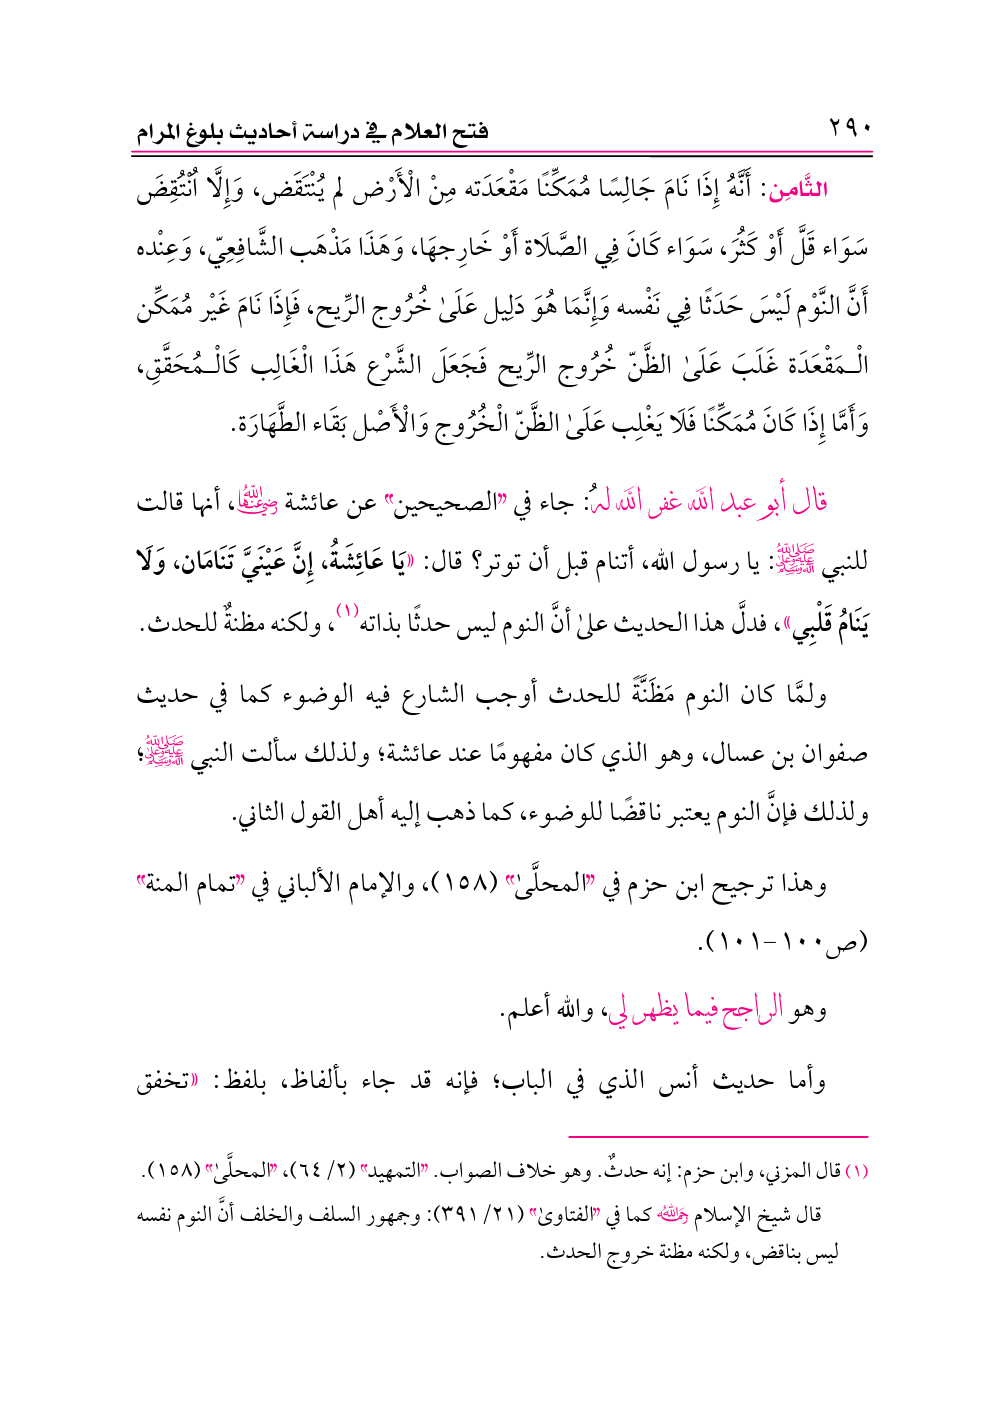 ٢٩٠
فتح العلام في دراسة أحاديث بلوغ المرام
الثَّامِن: أَنَّهُ إِذَا نَامَ جَالِسًا مُمَكِّنًا مَقْعَدَته مِنْ الْأَرْض لم يُنْتَقَض، وَإِلَّا اُنْتُقِضَ
سَوَاء قَلَّ أَوْ كَثُرَ، سَوَاء كَانَ فِي الصَّلَاة أَوْ خَارِجهَا، وَهَذَا مَذْهَب الشَّافِعِيّ، وَعِنْده
أَنَّ النَّوْم لَيْسَ حَدَثًا فِي نَفْسه وَإِنَّمَا هُوَ دَلِيل عَلَىٰ خُرُوج الرِّيح، فَإِذَا نَامَ غَيْر مُمَكِّن
الْـمَقْعَدَة غَلَبَ عَلَىٰ الظَّنّ خُرُوج الرِّيح فَجَعَلَ الشَّرْع هَذَا الْغَالِب كَالْـمُحَقَّقِ،
وَأَمَّا إِذَا كَانَ مُمَكِّنًا فَلَا يَغْلِب عَلَىٰ الظَّنّ الْخُرُوج وَالْأَصْل بَقَاء الطَّهَارَة.
قال أبو عبد الله غفر الله لهُ: جاء في "الصحيحين" عن عائشة رضي الله عنها، أنها قالت
للنبي ﷺ: يا رسول الله، أتنام قبل أن توتر؟ قال: «يَا عَائِشَةُ، إِنَّ عَيْنَيَّ تَنَامَان، وَلَا
يَنَامُ قَلْبِي»، فدلَّ هذا الحديث علىٰ أنَّ النوم ليس حدثًا بذاته(١)، ولكنه مظنةٌ للحدث.
ولمَّا كان النوم مَظَنَّةً للحدث أوجب الشارع فيه الوضوء كما في حديث
صفوان بن عسال، وهو الذي كان مفهومًا عند عائشة؛ ولذلك سألت النبي ﷺ؛
ولذلك فإنَّ النوم يعتبر ناقضًا للوضوء، كما ذهب إليه أهل القول الثاني.
وهذا ترجيح ابن حزم في "المحلَّىٰ" (١٥٨)، والإمام الألباني في "تمام المنة"
(ص١٠٠-١٠١).
وهو الراجح فيما يظهر لي، والله أعلم.
وأما حديث أنس الذي في الباب؛ فإنه قد جاء بألفاظ، بلفظ: «تخفق
(١) قال المزني، وابن حزم: إنه حدثٌ. وهو خلاف الصواب. "التمهيد" (٢/ ٦٤)، "المحلَّىٰ" (١٥٨).
قال شيخ الإسلام رحمه الله كما في "الفتاوىٰ" (٢١/ ٣٩١): وجمهور السلف والخلف أنَّ النوم نفسه
ليس بناقض، ولكنه مظنة خروج الحدث.